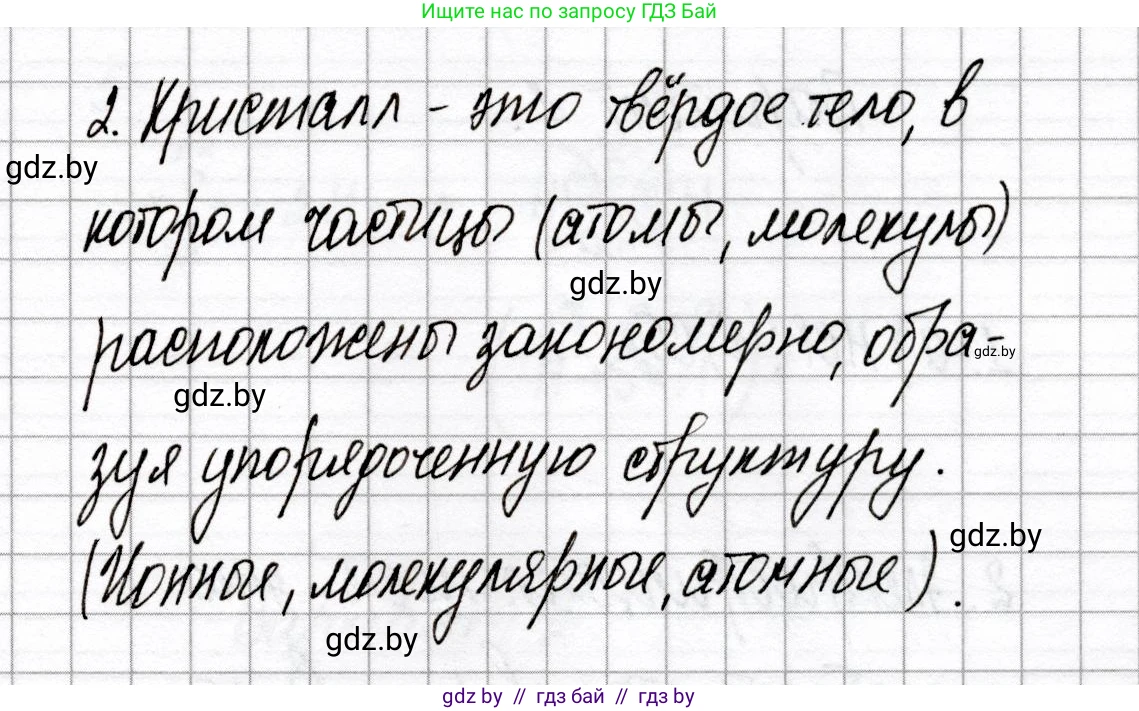 Ищите нас по запросу ГДЗ Бай
2. Кристалл - это твёрдое тело, в
gdz.by
котором частицы (атомы, молекулы)
gdz.by
расположены закономерно, обра-
gdz.by
gdz.by
зуя упорядоченную структуру.
gdz.by
(Ионные, молекулярные, атомные).
gdz.by
gdz by // гдз бай // гдз by